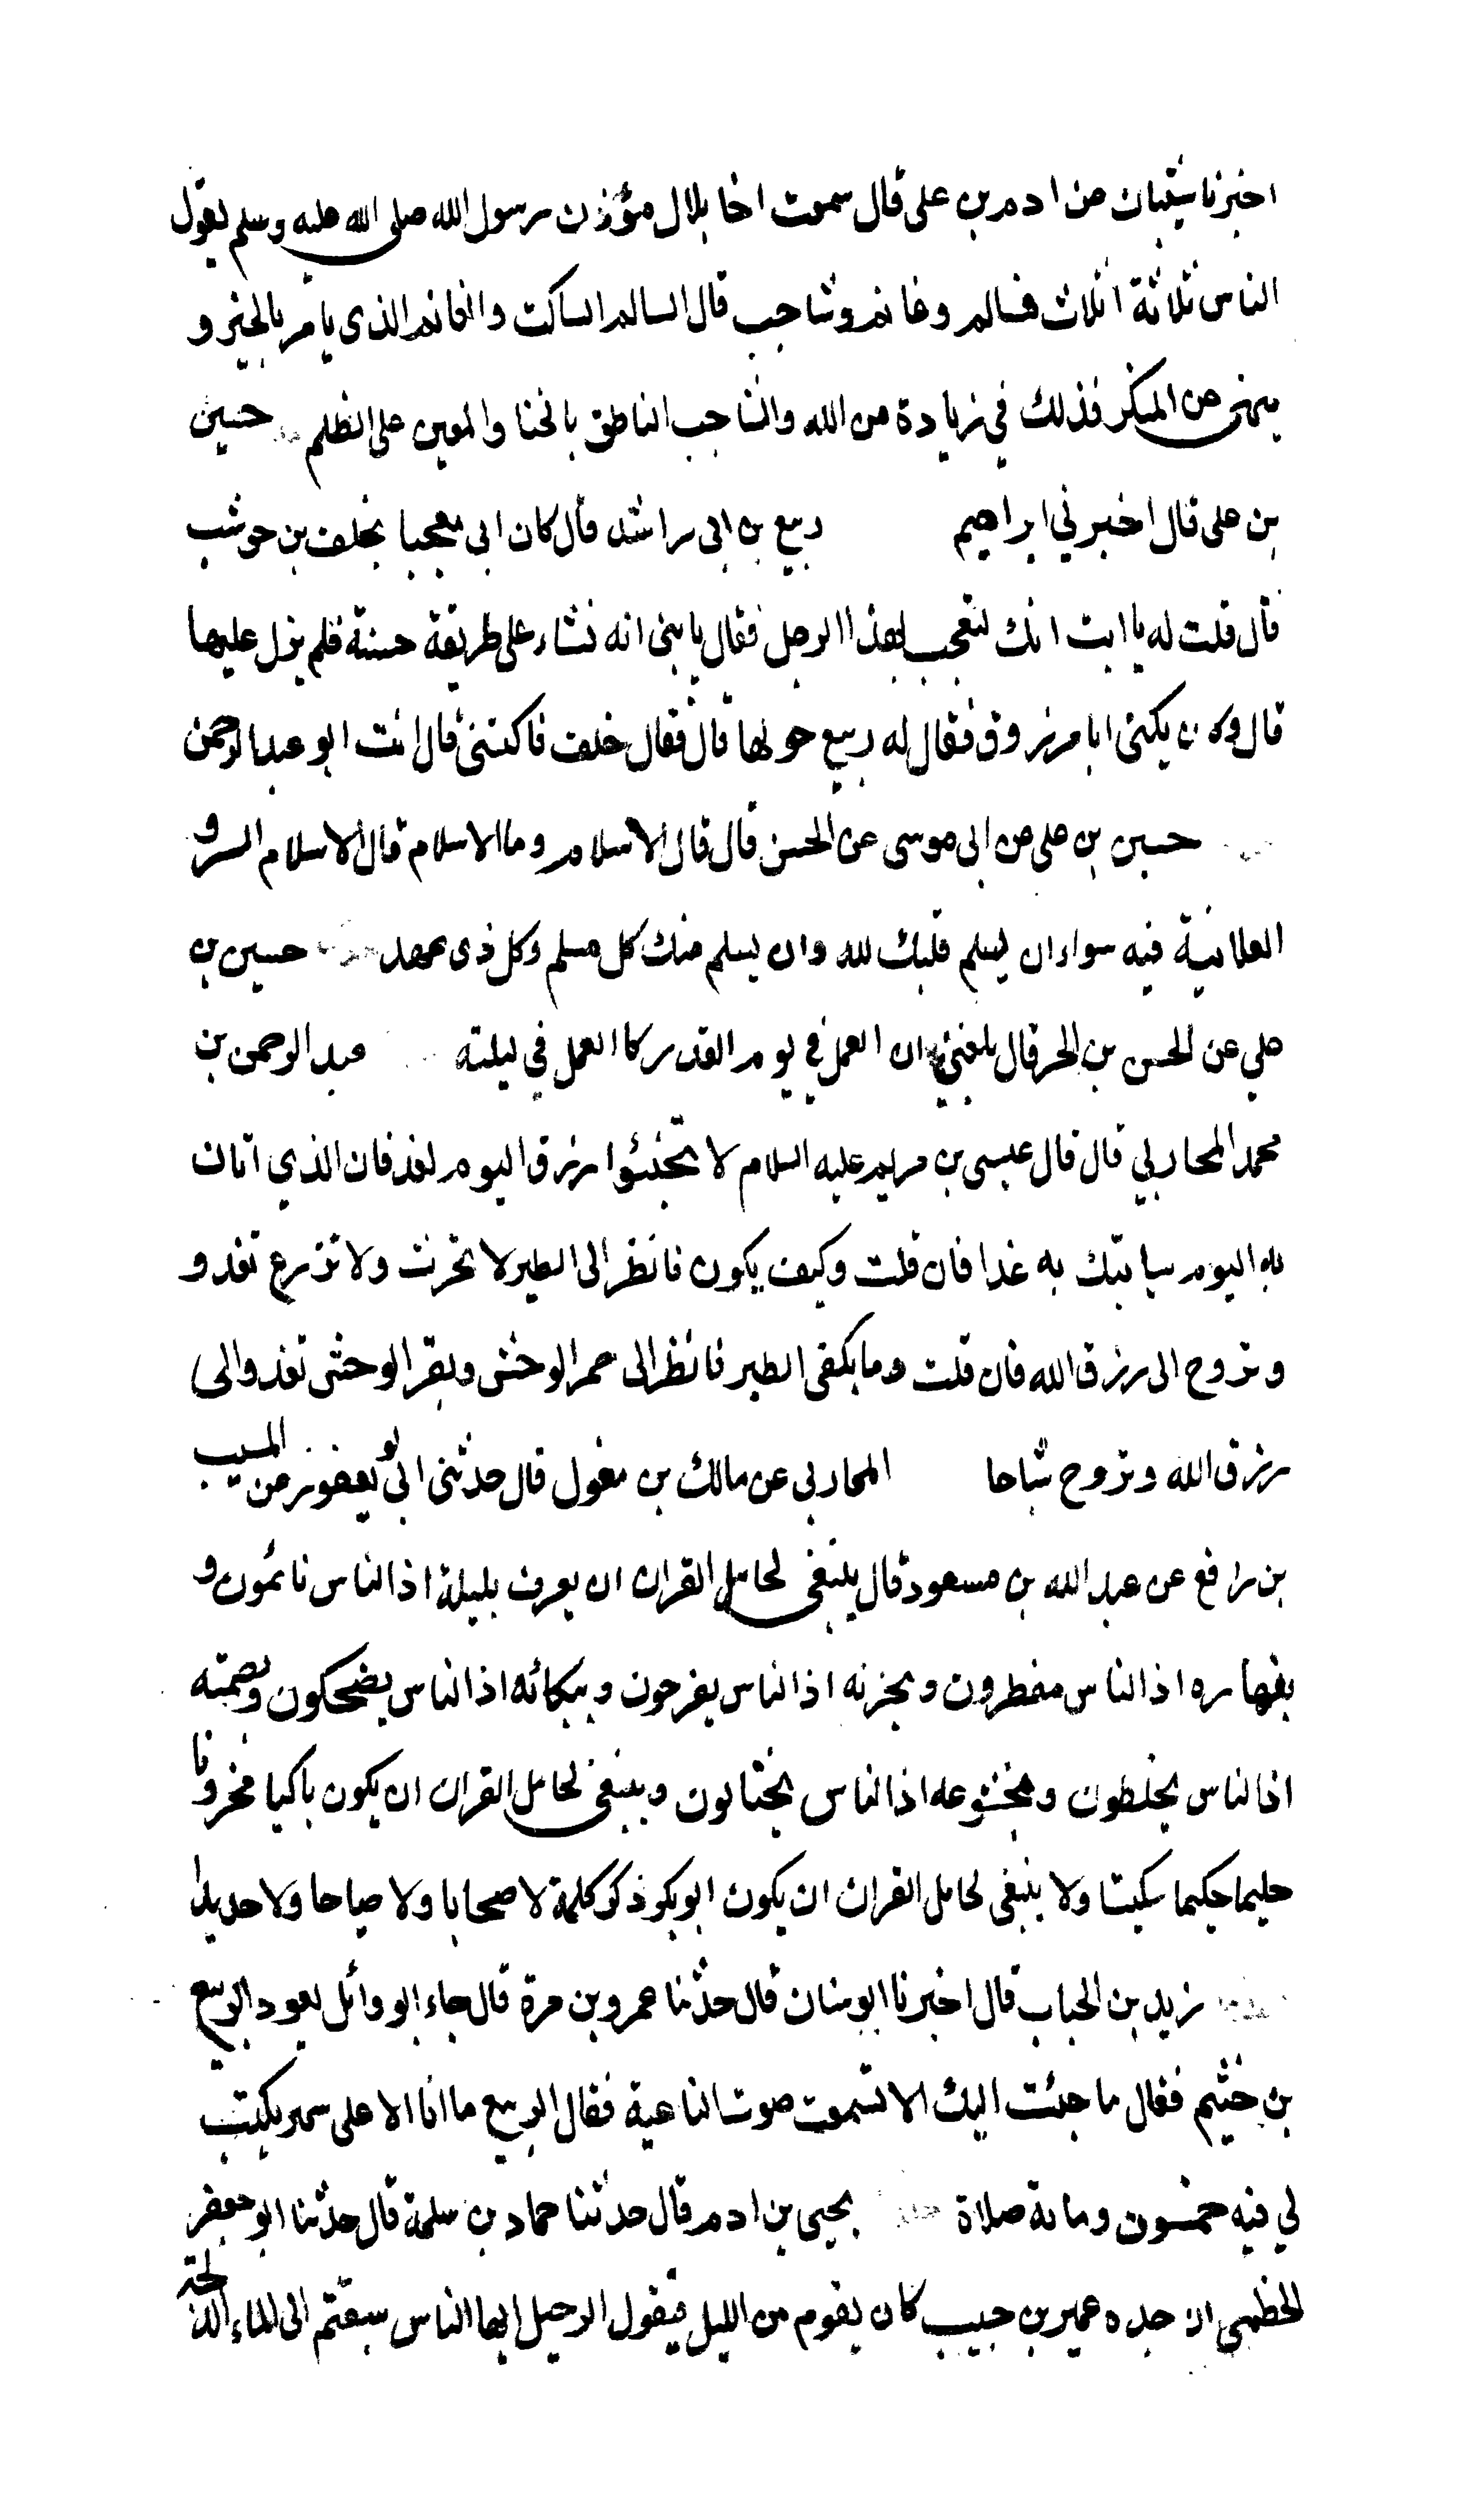 اخبرنا شيبان عن ادم بن على قال سمعت اخا بلال مؤذن رسول الله صلى الله عليه وسلم يقول
الناس ثلاثة اثلاث فسالم وغانم وشاجب قال السالم الساكت والغانم الذى يأمر بالخير و
ينهى عن المنكر فذلك في زيادة من الله والشاجب الناطق بالخنا والمعين على الظلم حسين
بن على قال اخبرني ابراهيم ربيع بن ابى راشد قال كان ابى معجبا بخلف بن حوشب
قال قلت له يا ابت انك لتعجب بهذا الرجل فقال يا بنى انه نشاء على طريقة حسنة فلم يزل عليها
قال وكان يكنى ابا مرزوق فقال له ربيع حولها قال فقال خلف فاكننى قال انت ابو عبد الرحمن
حسين بن على عن ابى موسى عن الحسن قال قال الاسلام وما الاسلام قال الاسلام السر و
العلانية فيه سواء ان يسلم قلبك لله وان يسلم منك كل مسلم وكل ذى عهد حسين بن
على عن الحسن بن الحر قال بلغني ان العمل في يوم القدر كا العمل في ليلته عبد الرحمن بن
محمد المحاربي قال قال عيسى بن مريم عليه السلام لا تخبئوا رزق اليوم لغد فان الذي اتاك
به اليوم سيا تيك به غدا فان قلت وكيف يكون فانظر الى الطير لا تحرث ولا تزرع تغد و
وتروح الى رزق الله فان قلت وما يكفى الطير فانظر الى حمر الوحش وبقر الوحش تغدو الى
رزق الله وتروح شباعا المحاربى عن مالك بن مغول قال حدثنى ابى يعفور عن المسيب
بن رافع عن عبد الله بن مسعود قال ينبغى لحامل القران ان يعرف بليلة اذا الناس نائمون و
بنهاره اذا الناس مفطرون وبحزنه اذا الناس يفرحون وببكائه اذا الناس يضحكون وبصمته
اذا الناس يخلطون وبخشوعه اذا الناس يختالون وينبغى لحامل القران ان يكون باكيا محزونا
حليما حكيما سكيتا ولا ينبغى لحامل القران ان يكون ابو بكر ذكر كلمة لا صخابا ولا صياحا ولا حديدا
زيد بن الحباب قال اخبرنا ابو سنان قال حدثنا عمرو بن مرة قال جاء ابو وائل يعود الربيع
بن خثيم فقال ما جئت اليك الا لتسمعت صوت الناعية فقال الربيع ما انا الا على سهر يكتب
لي فيه خمسون ومائة صلاة يحيى بن ادم قال حدثنا حماد بن سلمة قال حدثنا ابو جعفر
الخطمي ان جده عمير بن حبيب كان يقوم من الليل فيقول الرحيل ايها الناس سبقتم الى الماء